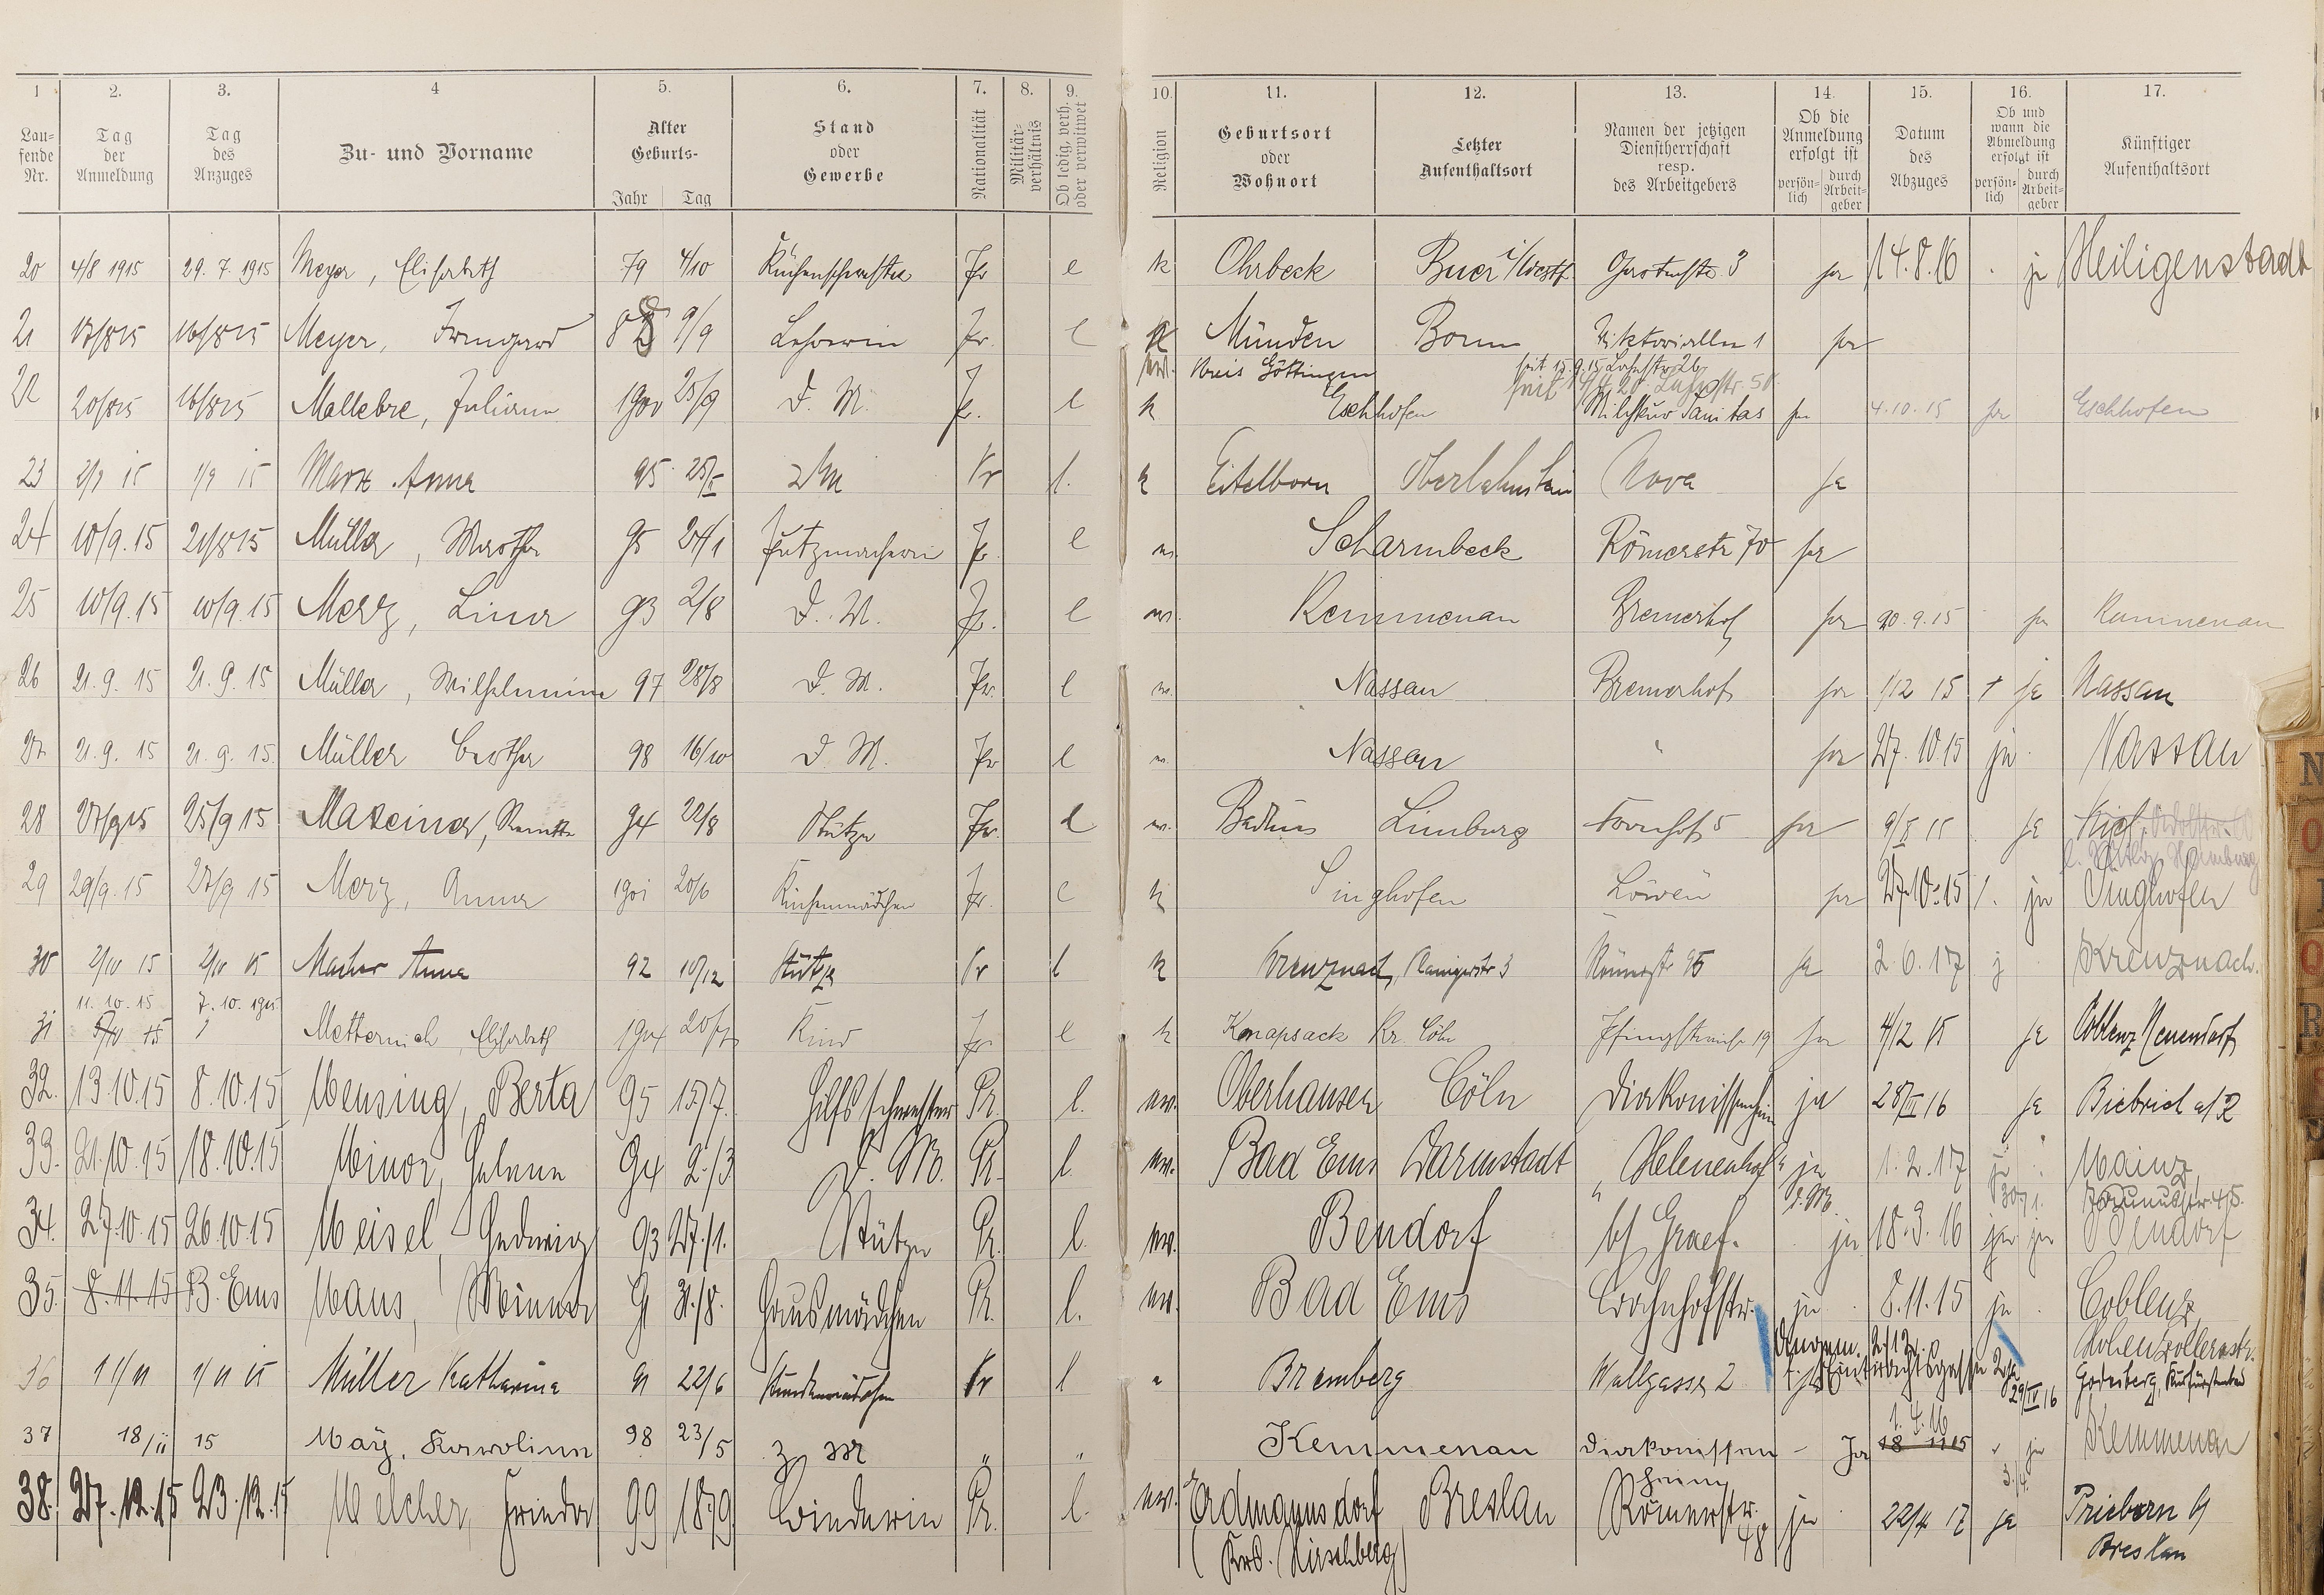 1 2. 3. 4 5. 6. 7. 8. 9. 10. 11. 12. 13. 14. 15. 16. 17.
Lau-fende Nr. Tag der Anmeldung Tag des Anzuges Zu- und Vorname Alter Geburts- Jahr Tag Stand oder Gewerbe Nationalität Militär-verhältnis Ob ledig, verh. oder verwitwet Religion Geburtsort oder Wohnort Letzter Aufenthaltsort Namen der jetzigen Dienstherrschaft resp. des Arbeitgebers Ob die Anmeldung erfolgt ist persön-lich durch Arbeit-geber Datum des Abzuges Ob und wann die Abmeldung erfolgt ist persön-lich durch Arbeit-geber Künftiger Aufenthaltsort
20 4/8 1915 29. 7. 1915 Meyer, Elisabeth 79 4/10 Küchenschwester Pr l k Ohrbeck Buer i/Westf. 3 ja 14.8.16 ja Heiligenstadt
21 17/8 15 16/8 15 Meyer, Irmgard 88 9/9 Lehrerin Pr. l Münden Bonn Viktoriallee 1 ja
ev. Kreis Göttingen seit 15.9.15 Lahnstr. 26
22 20/8 15 16/8 15 Mallebre, Juliane 1900 25/9 D. M. Pr. l k Eschhofen Milchkur Sanitas ja 4.10.15 ja Eschhofen
23 2/9 15 1/9 15 Marx Anna 95 25/ Pr l. k Eitelborn Oberlahnstein Nova ja
24 10/9.15 21/8 15 Müller, Martha 95 24/1 Putzmacherin Pr. l ev. Scharmbeck Römerstr 70 ja
25 10/9.15 10/9.15 Merz, Lina 93 2/8 D. M. Pr. l ev. Kemmenau Bremerhof ja 20.9.15 ja Kemmenau
26 21.9.15 21.9.15 Müller, Wilhelmine 97 28/8 D. M. Pr. l ev. Nassau Bremerhof ja 1/12 15 + ja Nassau
27 21.9.15 21.9.15. Müller Bertha 98 16/10 D. M. Pr l ev. Nassau " ja 27.10.15 ja Nassau
28 27/9 15 25/9 15 94 22/8 Stütze Pr. l ev. Limburg 5 ja 9/X 15 ja Kiel,
29 29/9.15 27/9 15 Merz, Anna 1901 20/6 Küchenmädchen Pr. l k Singhofen Löwen ja 27.10.15 /. ja Singhofen
30 2/10 15 2/10 15 Macher Anna 92 10/12 Stütze Pr l k Kreuznach, 3 Römerstr 95 ja 2.6.17 j Kreuznach.
11.10.15 7.10.1915
31 Metternich, Elisabeth 1904 Kind Pr. l k Knapsack Kr. Cöln 19 ja 4/12 15 ja Coblenz Neuendorf
32. 13.10.15 8.10.15 Mensing, Berta 95 15/7. Hilfsschwester Pr. l. ev. Oberhausen Cöln Diakonissenheim ja 28/III 16 ja Biebrich a/R
33. 21.10.15 18.10.15 Minor, Helene 94 2./3. D. M. Pr. l. ev. Bad Ems Darmstadt „Helenenhof“ ja 1.2.17 ja Mainz,
30/1. Taunusstr. 45.
34. 27.10.15 26.10.15 Meisel, Hedwig 93 27./1. Stütze Pr. l. ev. Bendorf b/ Graef. ja 18.3.16 ja ja Bendorf
35. 8.11.15 B. Ems Maus, Minna 91 31./8. Hausmädchen Pr. l. ev. Bad Ems Bahnhofstr. ja 8.11.15 ja Coblenz,
Hohenzollernstr.
36 1/11 1/11 15 Müller Katharina 91 22/6 Pr l " Bremberg Wallgasse 2 29/IV 16 Godesberg,
37 18/11 15 May, Karoline 98 23/5 z M " " Kemmenau Diakonissen- heim Ja 18 11 15 1.4.16 ja Kemmenau
3./4.
38. 27.12.15 23.12.15 Melcher, Frieda 99 18./9. Pr. l. ev. Erdmannsdorf Breslau Römerstr. 48 ja 22/4 17 ja Priebern b/
(Krs. Hirschberg) Breslau